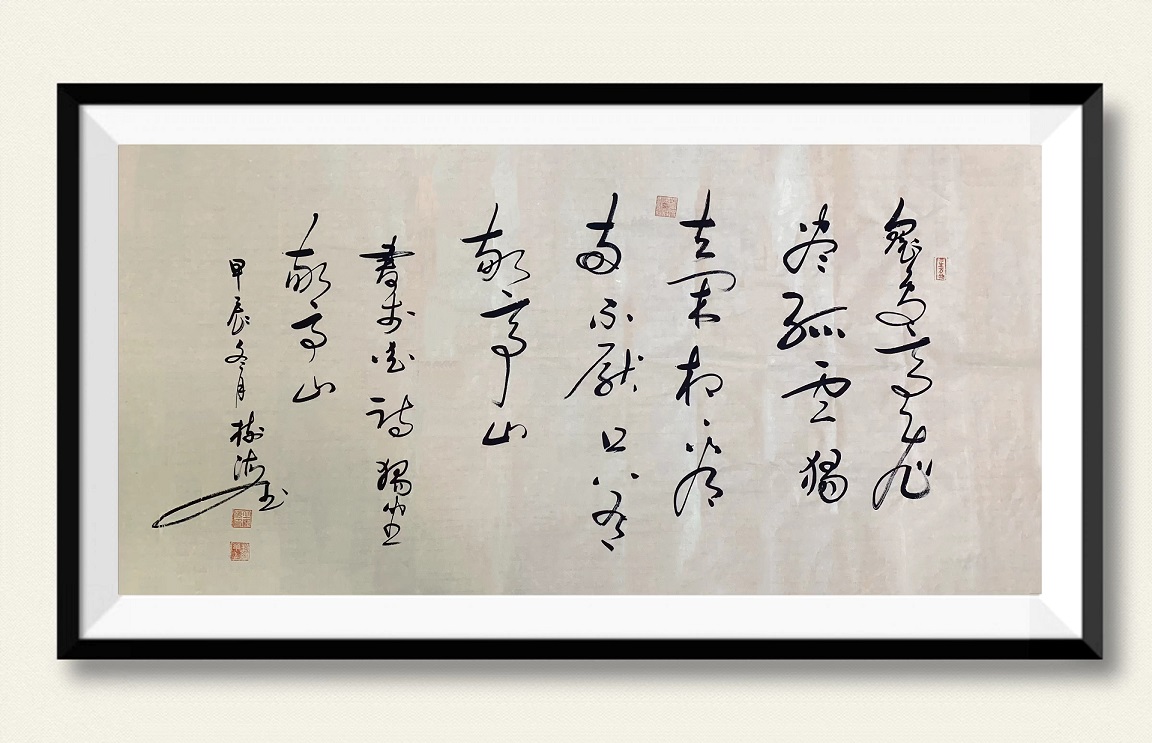 眾鳥高飛
盡孤雲獨
去閑相看
兩不厭只有
敬亭山
書詩獨坐
敬亭山
甲辰冬月樹